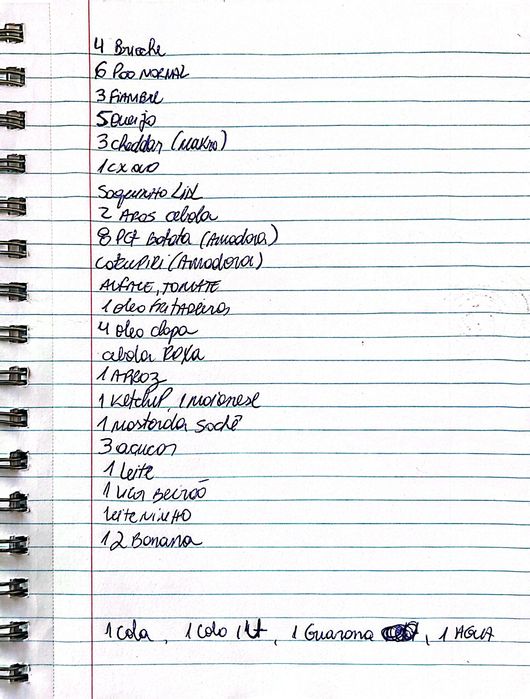 4 Brioche
6 Pão NORMAL
3 FiAMBRE
5 Queijo
3 cheddar (MAKRO)
1 cx ovo
Saquinho Lixo
2 Aros cebola
8 PCT Batata (Amadora)
CATUPIRI (Amadora)
ALFACE, TOMATE
1 óleo FRITADEIRAS
4 óleo chapa
cebola ROXA
1 ARROZ
1 KetchuP, 1 maionese
1 mostarda sachê
3 açucar
1 leite
1 licor Beirão
leite NINHO
12 Banana
1 Cola, 1 Cola 1Lt, 1 Guarana, 1 AGUA